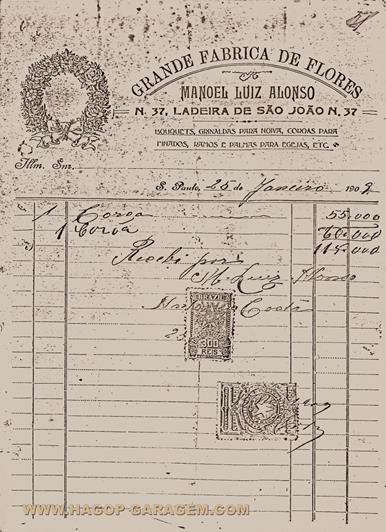 GRANDE FABRICA DE FLORES
DE
MANOEL LUIZ ALONSO
N. 37, LADEIRA DE SÃO JOÃO N. 37
BOUQUETS, GRINALDAS PARA NOIVA, COROAS PARA
FINADOS, RAMOS E PALMAS PARA EGEJAS, ETC.
Illm. Snr.
S. Paulo, 25 de Janeiro 190
1 Coroa 55.000
1 Coroa 60.000
Recebi por 115.000
M. Luiz Alonso
Costa
300
REIS
WWW.HAGOP-GARAGEM.COM